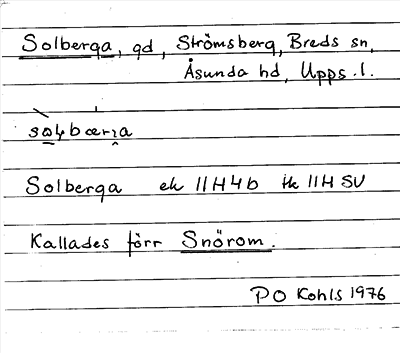 Solberga, gd, Strömsberg, Breds sn,
Åsunda hd, Upps. l.
Solberga ek 11H4b tk 11H SV
Kallades förr Snörom.
PO Kohls 1976